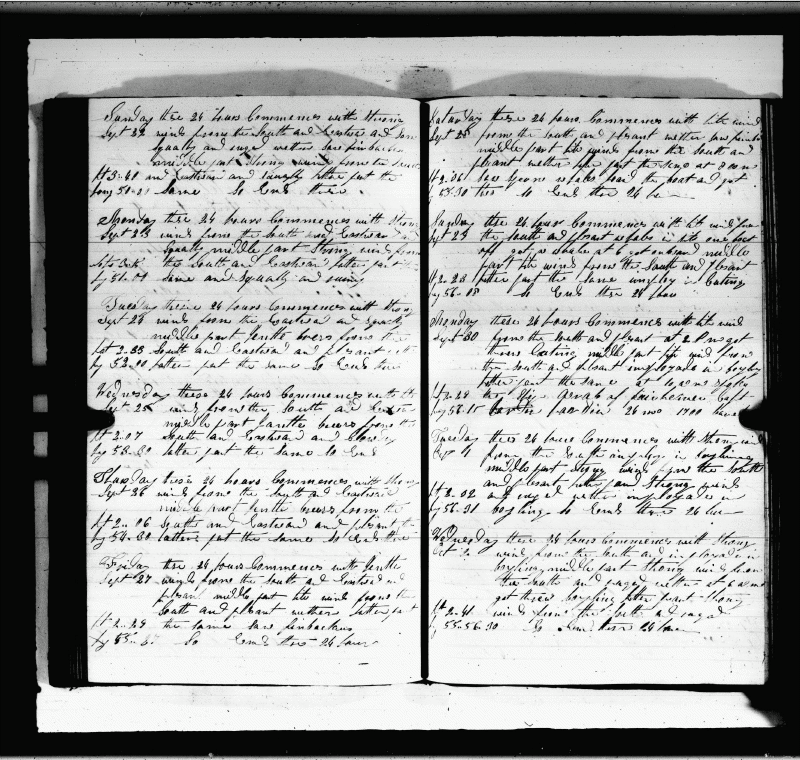 Sunday these 24 hours Commences with Strong
Sept 22 winds from the South and Eastward and some
squally and ruged wether saw finbacks
middle part Strong winds from the
Lt 3-40 and Eastward and squaly latter part the
Long 50-21 same So Ends these
Monday these 24 hours Commences with Strong
Sept 23 winds from the South and Eastward and
Squally middle part Strong winds from
the South and Eastward latter part the
Lg 51-04 same and Squally and
Tuesday these 24 hours Commences with Strong
Sept 24 winds from the Eastward and squaly
middle part Gentle breers from the
Lat 2-33 South and Eastward and plesant
Lg 52-00 latter part the same So Ends
Wednesday these 24 hours Commences with
Sept 25 winds from the South and
middle part Gentle breers from the
Lt 2-07 South and Eastward and Clowdy
Lg 53-30 latter part the same So Ends
Thursday these 24 hours Commences with Strong
Sept 26 winds from the South and Eastward
middle part Gentle breers from the
Lt 2-06 South and Eastward and plesant
Lg 54-30 latter part the same So Ends these
Friday these 24 hours Commences with Gentle
Sept 27 winds from the South and Eastward and
plesant middle part lite winds from the
South and plesant wether latter part
Lt 2-24 the same saw finbacks
Lg 55- So Ends these 24 hours
Saturday these 24 hours Commences with lite winds
Sept 28 from the South and plesant wether saw finbacks
middle part lite winds from the South and
plesant wether latter part the same at
Lt 2-36 saw
Lg 55-30 these So Ends these 24 hours
Sunday these 24 hours Commences with lite winds from
Sept 29 the South and plesant
off got a whale at 6 got on board middle
part lite winds from the South and plesant
Lt 2-28 latter part the same imployed in Cuting
Lg 56-05 So Ends these 24 hours
Monday these 24 hours Commences with lite winds
Sept 30 from the South and plesant at 2 PM got
threw Cuting middle part lite winds from
the South and plesant imployed in boyling
latter part the same at 10 AM spoke
Lt 2-24 the Ship of fairheaven Capt
Lg 56-15 26 mos 1700
Tuesday these 24 hours Commences with Strong winds
from the South imployed in boyling
middle part Strong winds from the South
and plesant latter part Strong winds
Lt 2-02 and ruged wether imployed in
Lg 56-31 boyling So Ends these 24 hours
Wednesday these 24 hours Commences with Strong
Oct 2 winds from the South and imployed in
boyling middle part Strong winds from
the South and ruged wether at 6 AM
got threw boyling latter part Strong
Lt 2-41 winds from the South and ruged
Lg 55-56-30 So Ends these 24 hours